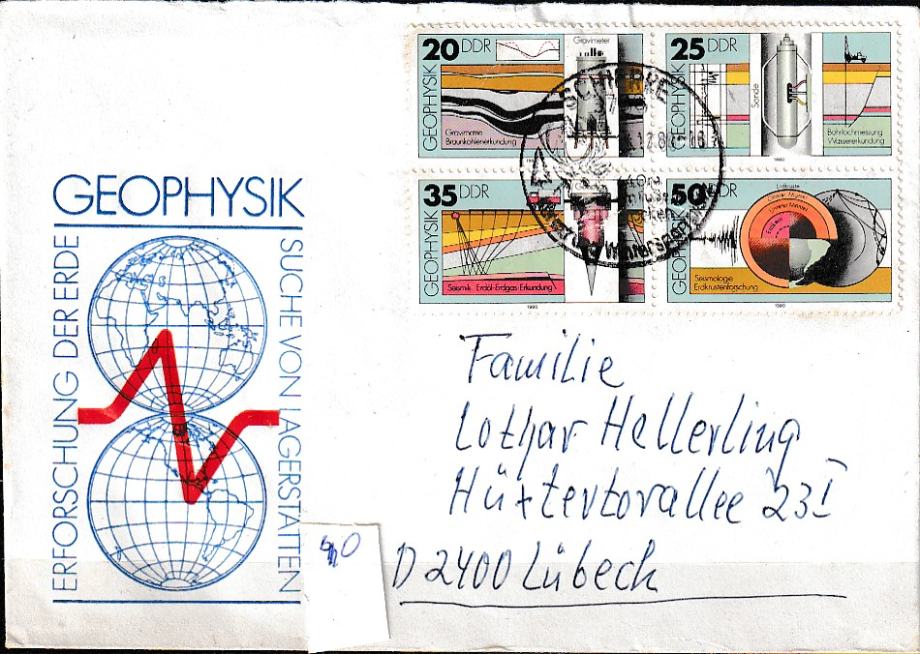 20 DDR
GEOPHYSIK
Gravimeter
Gravimetrie
Braunkohlenerkundung
1980
25 DDR
GEOPHYSIK
Sonde
Bohrlochmessung
Wassererkundung
1980
35 DDR
GEOPHYSIK
Seismik Erdöl-Erdgas-Erkundung
1980
50 DDR
GEOPHYSIK
Unterer Mantel
Seismologie
Erdkrustenforschung
1980
SCHIERKE
GEOPHYSIK
ERFORSCHUNG DER ERDE
SUCHE VON LAGERSTÄTTEN
Familie
Lothar Hellerling
Hüxtertorallee 23 I
D 2400 Lübeck